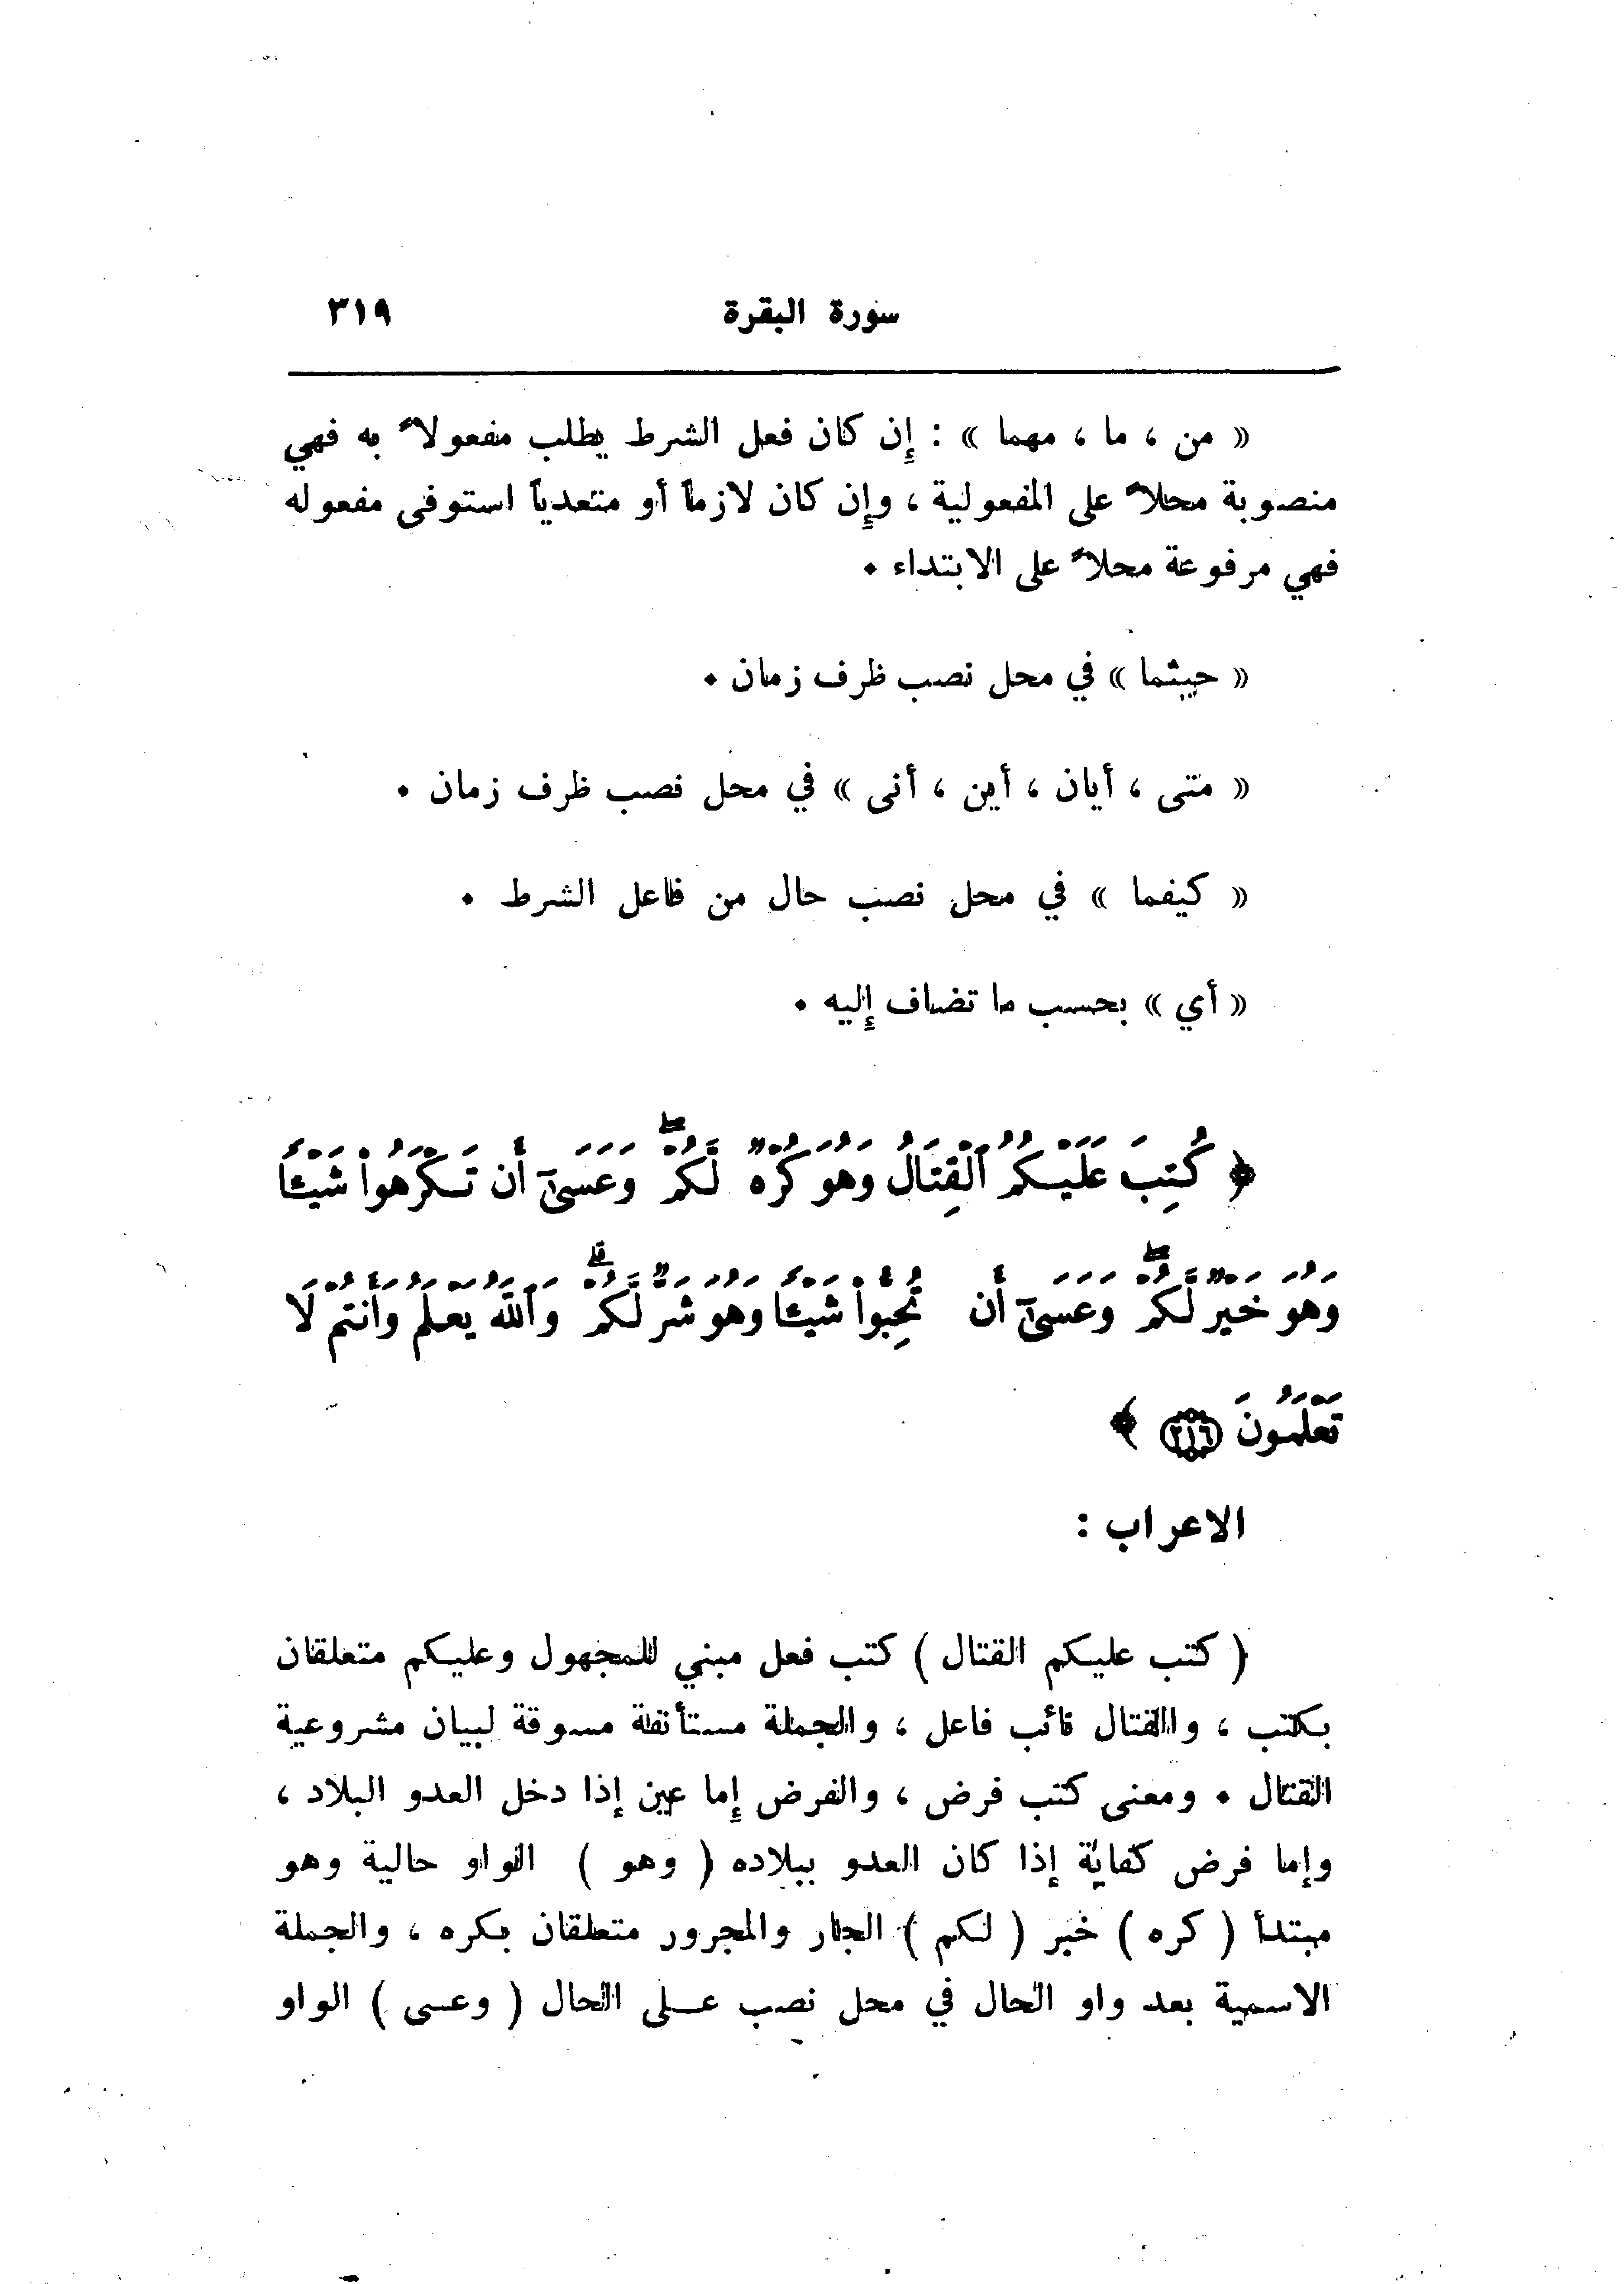 سورة البقرة ٣١٩
« من ، ما ، مهما » : إن كان فعل الشرط يطلب مفعولاً به فهي
منصوبة محلاً على المفعولية ، وإن كان لازماً أو متعدياً استوفى مفعوله
فهي مرفوعة محلاً على الابتداء .
« حيثما » في محل نصب ظرف زمان .
« متى ، أيان ، أين ، أنى » في محل نصب ظرف زمان .
« كيفما » في محل نصب حال من فاعل الشرط .
« أي » بحسب ما تضاف إليه .
﴿ كُتِبَ عَلَيْكُمُ ٱلْقِتَالُ وَهُوَ كُرْهٌ لَّكُمْ ۖ وَعَسَىٰٓ أَن تَكْرَهُوا۟ شَيْـًٔا
وَهُوَ خَيْرٌ لَّكُمْ ۖ وَعَسَىٰٓ أَن تُحِبُّوا۟ شَيْـًٔا وَهُوَ شَرٌّ لَّكُمْ ۗ وَٱللَّهُ يَعْلَمُ وَأَنتُمْ لَا
تَعْلَمُونَ ٢١٦ ﴾
الاعراب :
( كتب عليكم القتال ) كتب فعل مبني للمجهول وعليكم متعلقان
بكتب ، والقتال نائب فاعل ، والجملة مستأنفة مسوقة لبيان مشروعية
القتال . ومعنى كتب فرض ، والفرض إما عين إذا دخل العدو البلاد ،
وإما فرض كفاية إذا كان العدو ببلاده ( وهو ) الواو حالية وهو
مبتدأ ( كره ) خبر ( لكم ) الجار والمجرور متعلقان بكره ، والجملة
الاسمية بعد واو الحال في محل نصب على الحال ( وعسى ) الواو